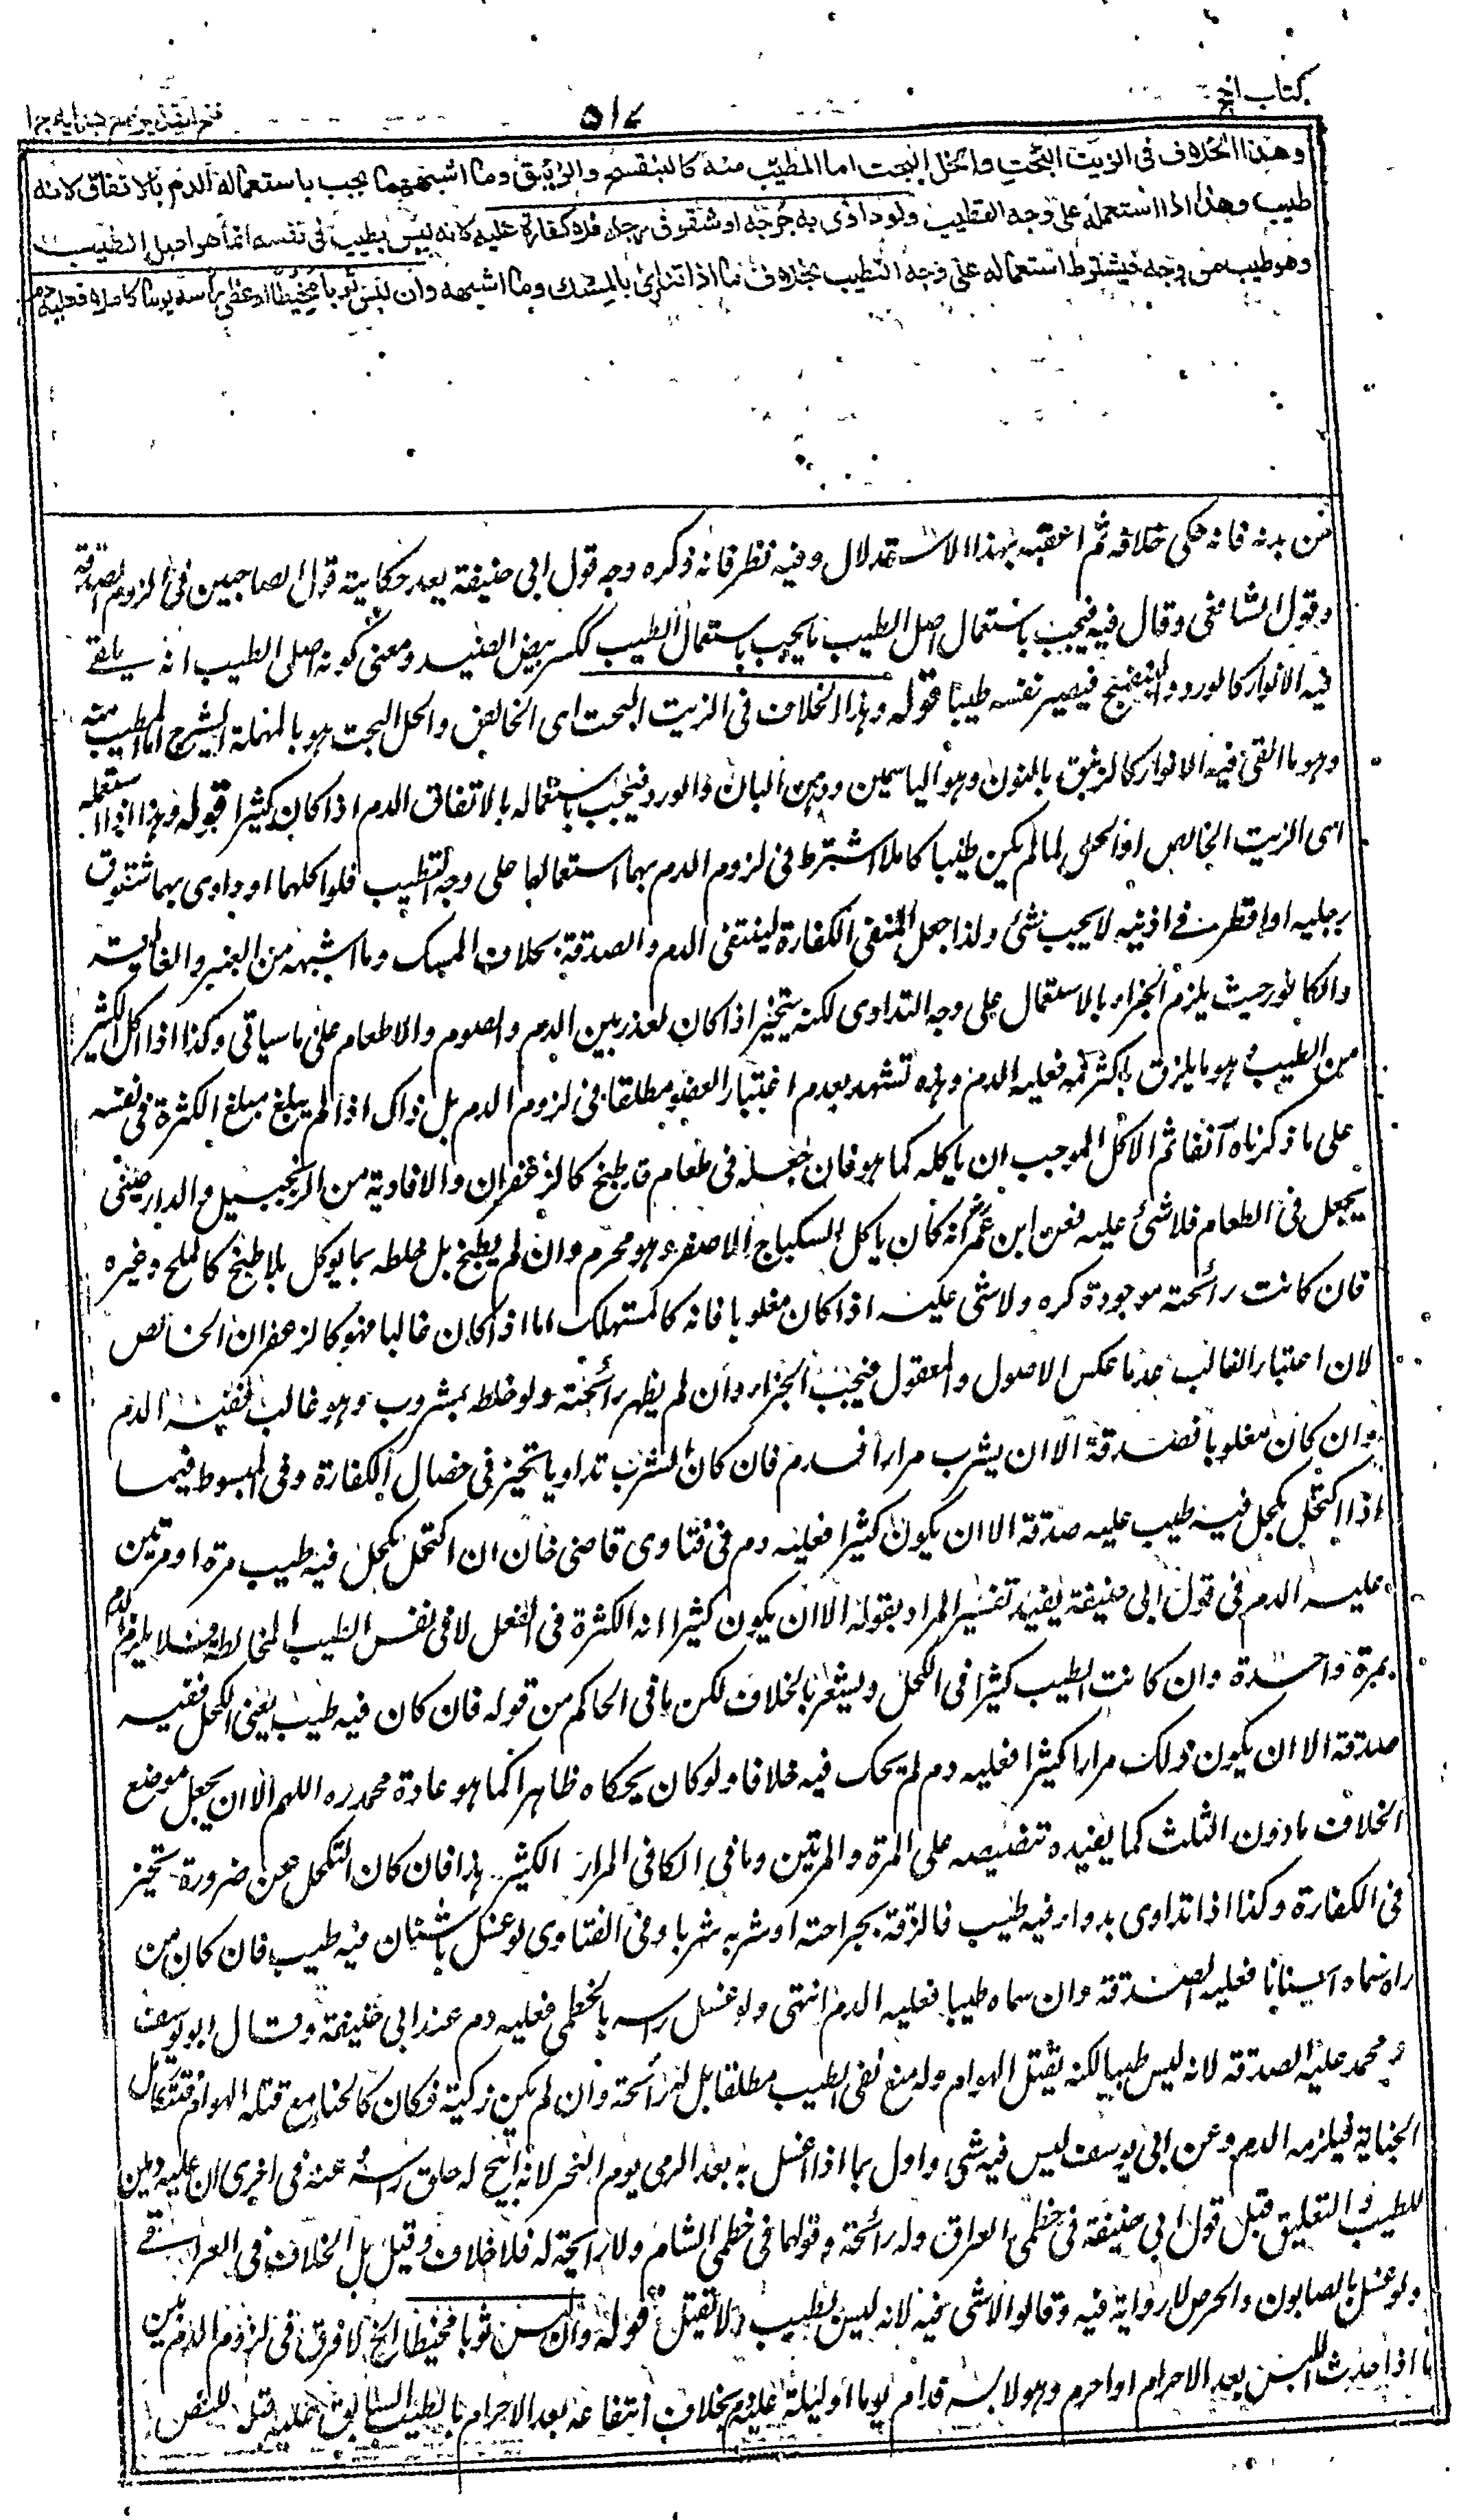 كتاب الحج
٥١٤
وهذا الخلاف في الزيت البحت والحل البحت اما المطيب منه كالبنفسج والزنبق وما اشبههما يجب باستعماله الدم بالاتفاق لانه
طيب وهذا اذا استعمله على وجه التطيب ولو داوى به جرحه او شقوق رجله فلا كفارة عليه لانه ليس بطيب في نفسه انما هو اصل الطيب
وهو طيب من وجه فيشترط استعماله على وجه التطيب بخلاف ما اذا تداوى بالمسك وما اشبهه وان لبس ثوبا مخيطا او غطى رأسه يوما كاملا فعليه دم
من بدنه فانه حكى خلافه ثم اعقبه بهذا الاستدلال وفيه نظر فانه ذكره وجه قول ابى حنيفة بعد حكاية قول الصاحبين فى لزوم الصدقة
وقول الشافعى وقال فيه فيجب باستعمال اصل الطيب ما يجب باستعمال الطيب ككسر بيض الصيد ومعنى كونه اصل الطيب انه يلقے
فيه الانوار كالورد والبنفسج فيصير نفسه طيبا قوله وهذا الخلاف فى الزيت البحت اى الخالص والحل البحت هو بالمهملة الشيرج اما المطيب منه
وهو ما القى فيه الانوار كالزنبق بالنون وهو الياسمين ودهن البان والورد فيجب باستعماله بالاتفاق الدم اذا كان كثيرا قوله وهذا اذا استعمله
اى الزيت الخالص او الحل لما لم يكن طيبا كاملا اشترط فى لزوم الدم بهما استعمالهما على وجه التطيب فلو اكلهما او داوى بهما شقوق
رجليه او اقطر فے اذنيه لا يجب شئ ولذا جعل المنفى الكفارة لينتفى الدم والصدقة بخلاف المسك وما اشبهه من العنبر والغالية
والكافور حيث يلزم الجزاء بالاستعمال على وجه التداوى لكنه يتخير اذا كان لعذر بين الدم والصوم والاطعام على ما سياتى وكذا اذا اكل الكثير
من الطيب هو ما يلزق باكثر فمه فعليه الدم وهذه تشهد بعدم اعتبار العضو مطلقا فى لزوم الدم بل ذاك اذا لم يبلغ مبلغ الكثرة فى نفسه
على ما ذكرناه آنفا ثم الاكل الموجب ان ياكله كما هو فان جعله فى طعام قد طبخ كالزعفران والافاوية من الزنجبيل والدارصينى
يجعل فى الطعام فلا شئ عليه فعن ابن عمر انه كان ياكل السكباج الاصفر وهو محرم وان لم يطبخ بل خلطه بما يوكل بلا طبخ كالملح وغيره
فان كانت رائحته موجودة كره ولا شى عليه اذا كان مغلوبا فانه كالمستهلك اما اذا كان غالبا فهو كالزعفران الخالص
لان اعتبار الغالب عدما عكس الاصول والمعقول فيجب الجزاء وان لم يظهر رائحته ولو خلطه بمشروب وهو غالب ففيه الدم
وان كان مغلوبا فصدقة الا ان يشرب مرارا فدم فان كان الشرب تداويا تخير فى خصال الكفارة وفى المبسوط فيما
اذا اكتحل بكحل فيه طيب عليه صدقة الا ان يكون كثيرا فعليه دم فى فتاوى قاضى خان ان اكتحل بكحل فيه طيب مرة او مرتين
عليه الدم فى قول ابى حنيفة يفيد تفسير المراد بقوله الا ان يكون كثيرا انه الكثرة فى الفعل لا فى نفس الطيب المخالطة فلا يلزم الدم
بمرة واحدة وان كانت الطيب كثيرا فى الكحل ويشعر بالخلاف لكن ما فى الحاكم من قوله فان كان فيه طيب يعنى الكحل ففيه
صدقة الا ان يكون ذلك مرارا كثيرا فعليه دم لم يحك فيه خلافا ولو كان يحكاه ظاهرا كما هو عادة محمد ره اللهم الا ان يجعل موضع
الخلاف ما دون الثلث كما يفيده تنصيصه على المرة والمرتين وما فى الكافى المرار الكثير هذا فان كان التكحل عن ضرورة تخير
فى الكفارة وكذا اذا تداوى بدواء فيه طيب فالزقه بجراحته او شربه شربا وفى الفتاوى لو غسل باشنان فيه طيب فان كان من
راه سماه اشنانا فعليه الصدقة وان سماه طيبا فعليه الدم انتهى ولو غسل راسه بالخطمى فعليه دم عند ابى حنيفة وقال ابو يوسف
ومحمد عليه الصدقة لانه ليس طيبا لكنه يقتل الهوام وله منع نفى الطيب مطلقا بل له رائحة وان لم يكن زكية فكان كالحناء مع قتله الهوام فتتكامل
الجناية فيلزمه الدم وعن ابى يوسف ليس فيه شى واول بما اذا غسل به بعد الرمى يوم النحر لانه ابيح له حلق راسه وعنه فى اخرى ان عليه دمين
للطيب والتغليق قيل قول ابى حنيفة فى خطمى العراق وله رائحة وقولهما فى خطمى الشام ولا رائحة له فلا خلاف وقيل بل الخلاف فى العراقے
ولو غسل بالصابون والحرض لا رواية فيه وقالوا لا شى فيه لانه ليس بطيب ولا يقتل قوله وان لبس ثوبا مخيطا الخ لا فرق فى لزوم الدم بين
ما اذا احدث اللبس بعد الاحرام او احرم وهو لابسه فدام يوما او ليلة عليه دم بخلاف انتفاعه بعد الاحرام بالطيب السابق عليه قبله للنص